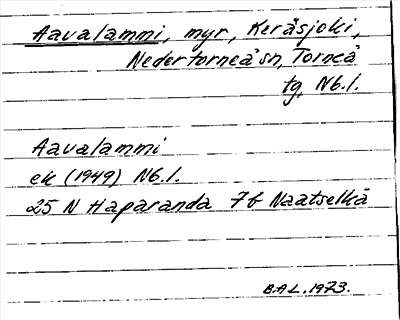 Aavalammi, myr, Keräsjoki,
Nedertorneå sn, Torneå
tg, Nb.l.
Aavalammi
ek (1949) Nb.l.
25 N Haparanda 7f Naatselkä
B.A.L. 1973.